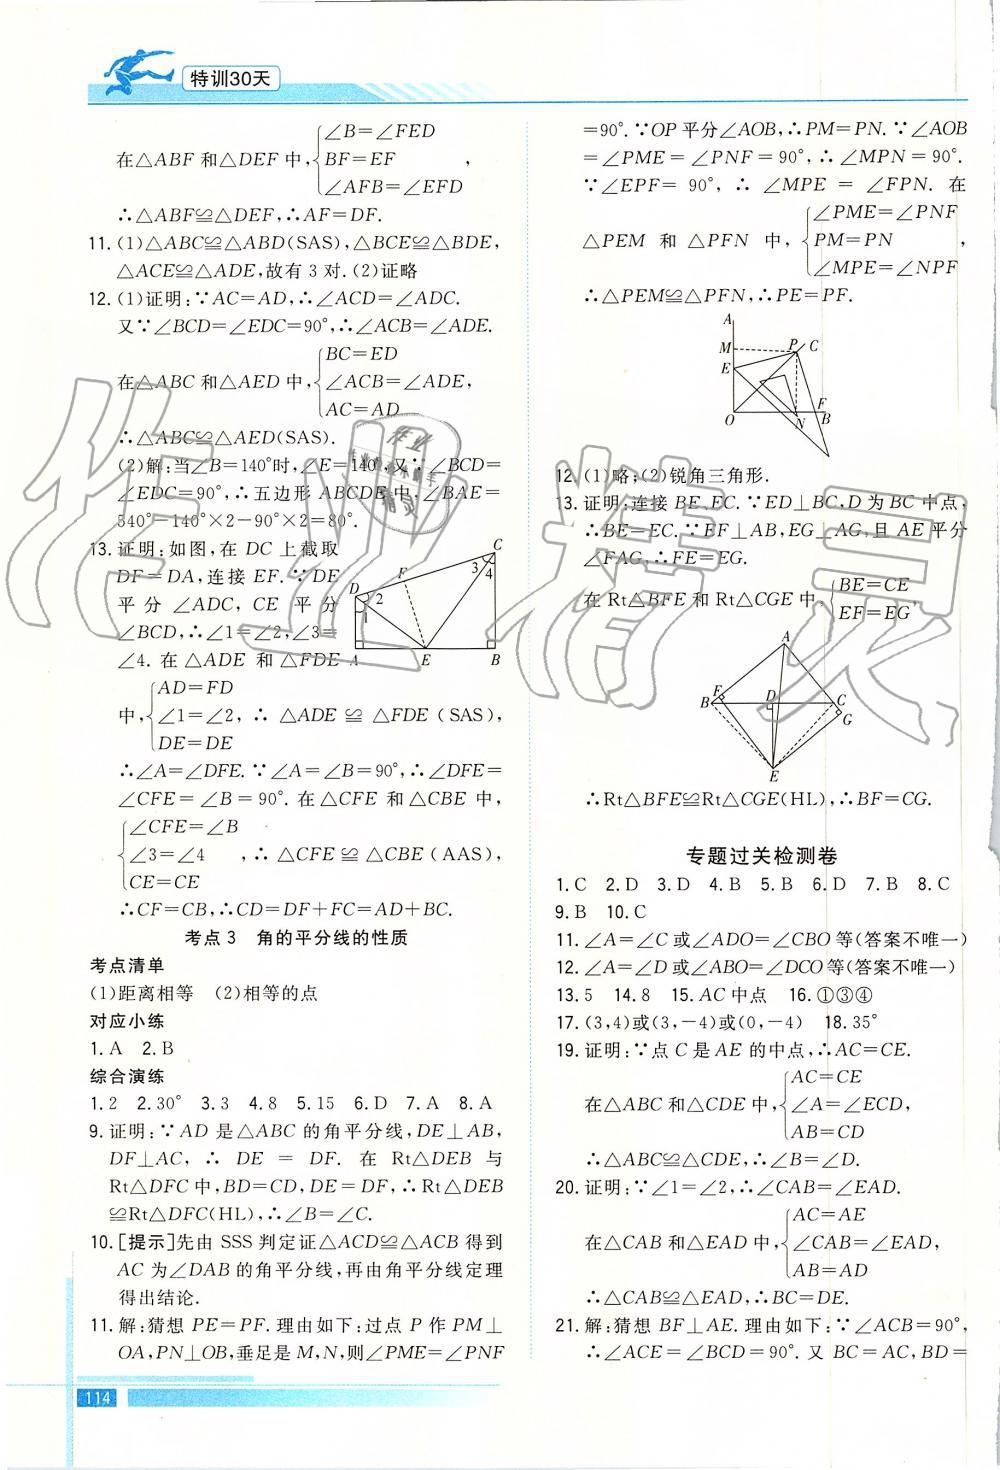 特训30天
在△ABF和△DEF中,{∠B=∠FED
BF=EF
∠AFB=∠EFD,
∴△ABF≌△DEF,∴AF=DF.
11.(1)△ABC≌△ABD(SAS),△BCE≌△BDE,
△ACE≌△ADE,故有3对.(2)证略
12.(1)证明:∵AC=AD,∴∠ACD=∠ADC.
又∵∠BCD=∠EDC=90°,∴∠ACB=∠ADE.
在△ABC和△AED中,{BC=ED
∠ACB=∠ADE,
AC=AD
∴△ABC≌△AED(SAS).
(2)解:当∠B=140°时,∠E=140°,又∵∠BCD=
∠EDC=90°,∴五边形ABCDE中,∠BAE=
540°-140°×2-90°×2=80°.
13.证明:如图,在DC上截取
DF=DA,连接EF.∵DE
平分∠ADC,CE平分
∠BCD,∴∠1=∠2,∠3=
∠4.在△ADE和△FDE
中,{AD=FD
∠1=∠2,∴△ADE≌△FDE(SAS),
DE=DE
∴∠A=∠DFE.∵∠A=∠B=90°,∴∠DFE=
∠CFE=∠B=90°.在△CFE和△CBE中,
{∠CFE=∠B
∠3=∠4,∴△CFE≌△CBE(AAS),
CE=CE
∴CF=CB,∴CD=DF+FC=AD+BC.
C
F
3
4
D
2
1
A
E
B
考点3 角的平分线的性质
考点清单
(1)距离相等 (2)相等的点
对应小练
1.A 2.B
综合演练
1.2 2.30° 3.3 4.8 5.15 6.D 7.A 8.A
9.证明:∵AD是△ABC的角平分线,DE⊥AB,
DF⊥AC,∴DE=DF.在Rt△DEB与
Rt△DFC中,BD=CD,DE=DF,∴Rt△DEB
≌Rt△DFC(HL),∴∠B=∠C.
10.[提示]先由SSS判定证△ACD≌△ACB得到
AC为∠DAB的角平分线,再由角平分线定理
得出结论.
11.解:猜想PE=PF.理由如下:过点P作PM⊥
OA,PN⊥OB,垂足是M,N,则∠PME=∠PNF
=90°.∵OP平分∠AOB,∴PM=PN.∵∠AOB
=∠PME=∠PNF=90°,∴∠MPN=90°.
∵∠EPF=90°,∴∠MPE=∠FPN.在
△PEM和△PFN中,{∠PME=∠PNF
PM=PN,
∠MPE=∠NPF
∴△PEM≌△PFN,∴PE=PF.
A
M
P
C
E
O
N
F
B
12.(1)略;(2)锐角三角形.
13.证明:连接BE、EC.∵ED⊥BC,D为BC中点,
∴BE=EC.∵EF⊥AB,EG⊥AG,且AE平分
∠FAG,∴FE=EG.
在Rt△BFE和Rt△CGE中,{BE=CE
EF=EG,
A
F
D
B
C
G
E
∴Rt△BFE≌Rt△CGE(HL),∴BF=CG.
专题过关检测卷
1.C 2.D 3.D 4.B 5.B 6.D 7.B 8.C
9.B 10.C
11.∠A=∠C或∠ADO=∠CBO等(答案不唯一)
12.∠A=∠D或∠ABO=∠DCO等(答案不唯一)
13.5 14.8 15.AC中点 16.①③④
17.(3,4)或(3,-4)或(0,-4) 18.35°
19.证明:∵点C是AE的中点,∴AC=CE.
在△ABC和△CDE中,{AC=CE
∠A=∠ECD,
AB=CD
∴△ABC≌△CDE,∴∠B=∠D.
20.证明:∵∠1=∠2,∴∠CAB=∠EAD.
在△CAB和△EAD中,{AC=AE
∠CAB=∠EAD,
AB=AD
∴△CAB≌△EAD,∴BC=DE.
21.解:猜想BF⊥AE.理由如下:∵∠ACB=90°,
∴∠ACE=∠BCD=90°.又BC=AC,BD=
114
作业精灵